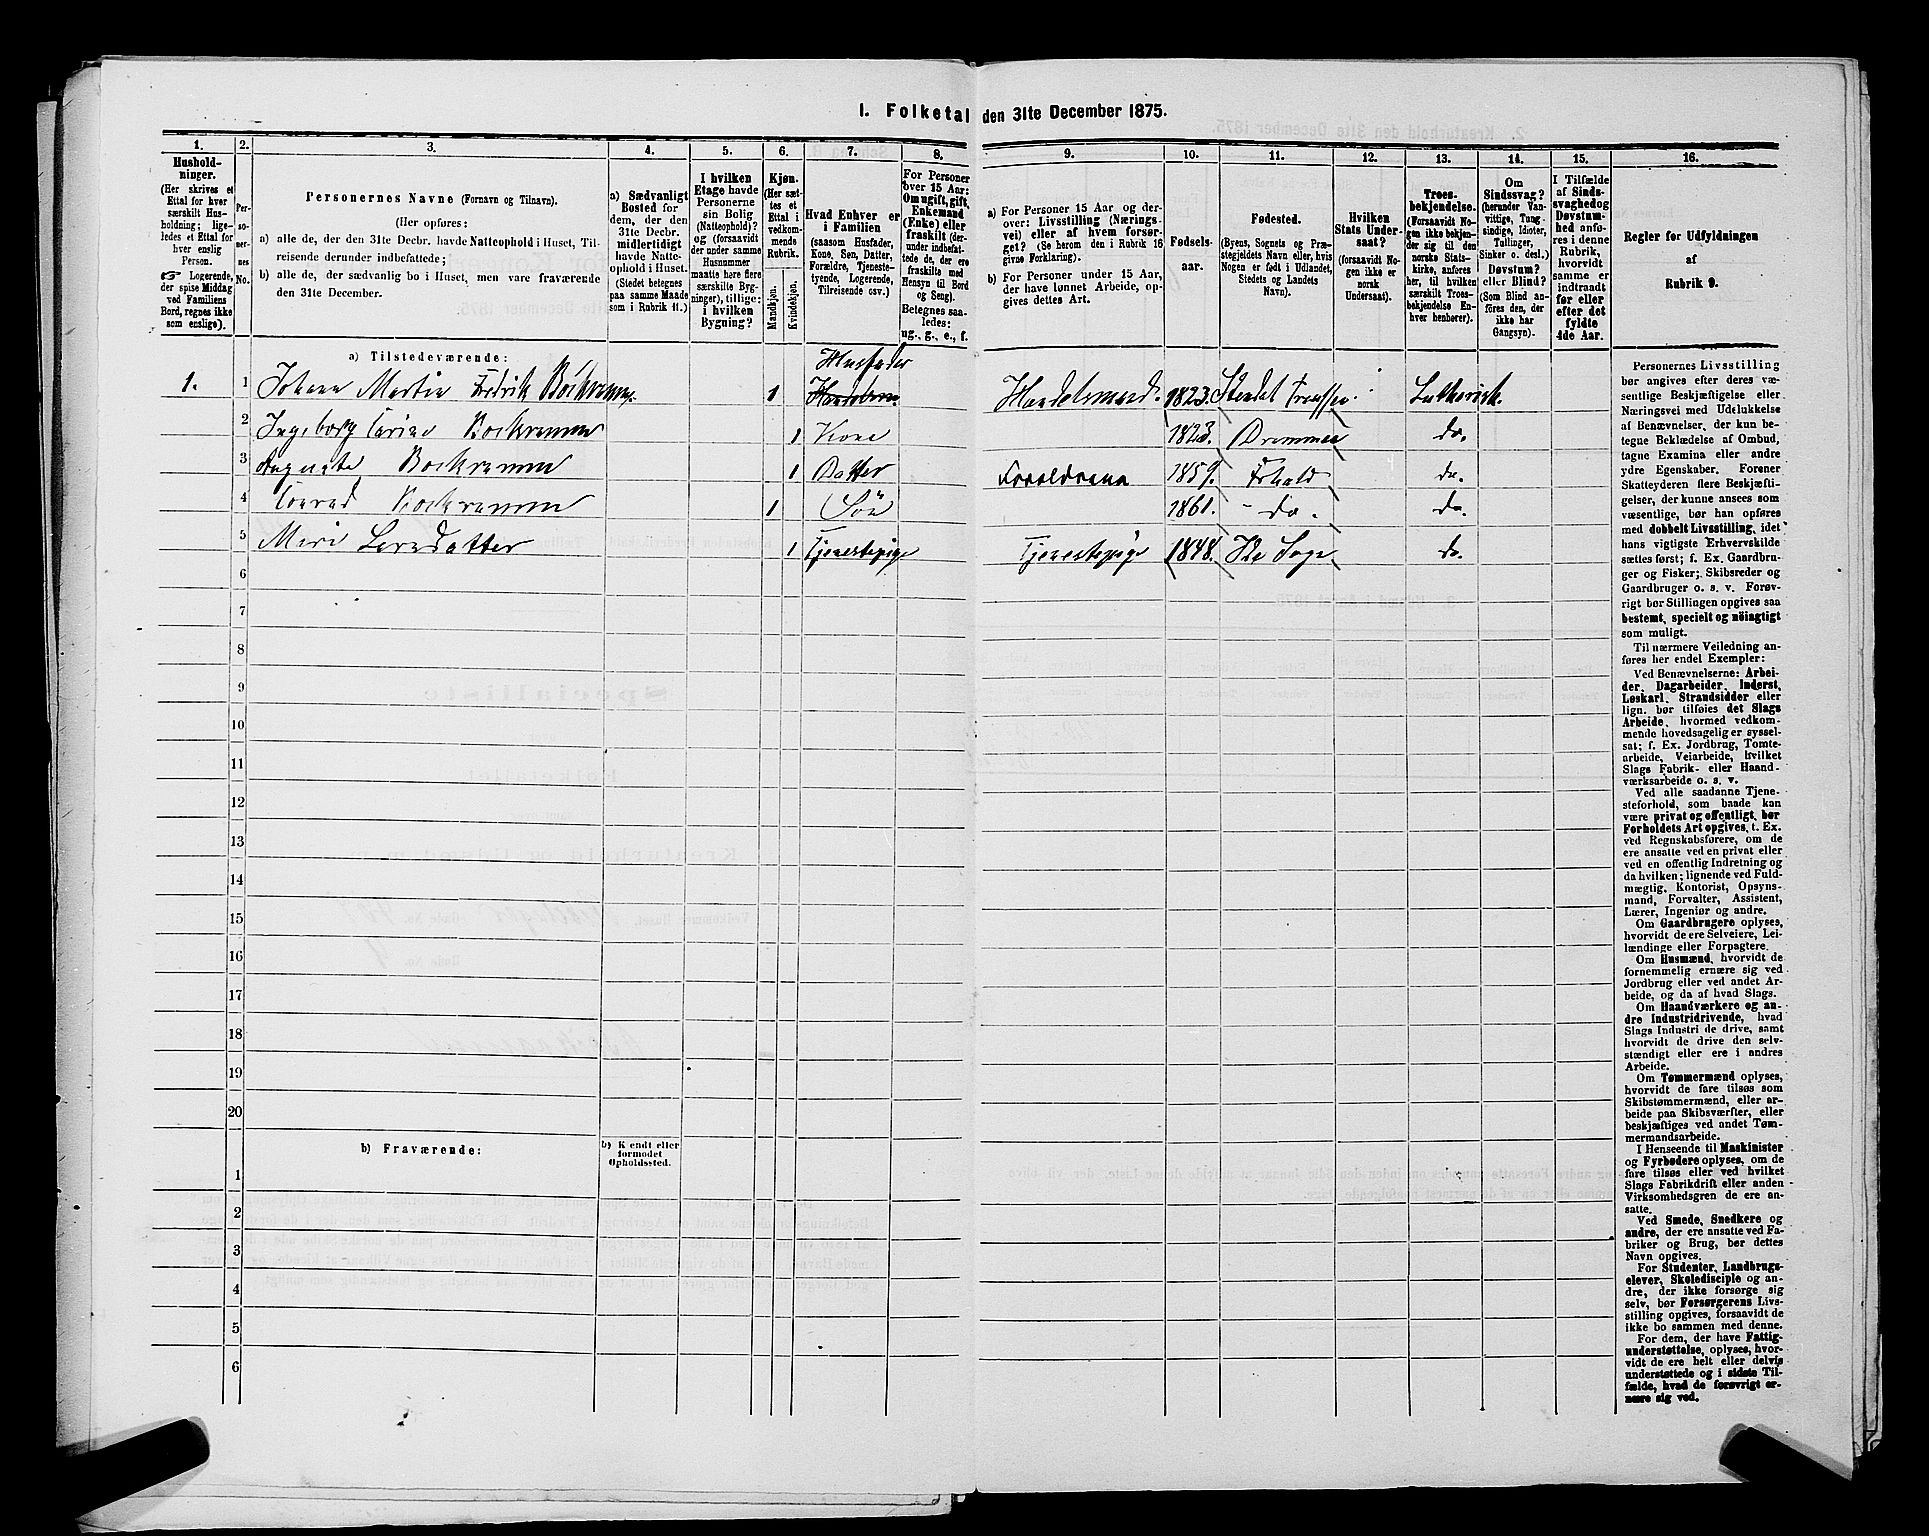 I. Folketal den 31te December 1875.
1. 2. 3. 4. 5. 6. 7. 8. 9. 10. 11. 12. 13. 14. 15. 16.
Hushold-
ninger.
(Her skrives et
Ettal for hver
særskilt Hus-
holdning; lige-
ledes et Ettal for
hver enslig
Person.
☞ Logerende,
der spise Middag
ved Familiens
Bord, regnes ikke
som enslige).
Per-
so-
ner-
nes
No.
Personernes Navne (Fornavn og Tilnavn).
(Her opføres:
a) alle de, der den 31te Decbr. havde Natteophold i Huset, Til-
reisende derunder indbefattede;
b) alle de, der sædvanlig bo i Huset, men vare fraværende
den 31te December.
a) Sædvanligt
Bosted for
dem, der den
31te Decbr.
midlertidigt
havde Natte-
ophold i Huset.
(Stedet betegnes
paa samme Maade
som i Rubrik 11.)
I hvilken
Etage havde
Personerne
sin Bolig
(Natteophold)?
og (forsaavidt
der under samme
Husnummer
maatte høre flere
særskilte Byg-
ninger), tillige:
i hvilken
Bygning?
Kjøn.
(Her sæt-
tes et
Ettal i
vedkom-
mende
Rubrik.
Mandkjøn.
Kvindekjøn.
Hvad Enhver er
i Familien
(saasom Husfader,
Kone, Søn, Datter,
Forældre, Tjeneste-
tyende, Logerende,
Tilreisende osv.)
For Personer
over 15 Aar:
Om ugift, gift,
Enkemand
(Enke) eller
fraskilt (der-
under indbefat-
tede de, der ere
fraskilte med
Hensyn til Bord
og Seng).
Betegnes saa-
ledes:
ug., g., e., f.
a) For Personer 15 Aar og der-
over: Livsstilling (Nærings-
vei) eller af hvem forsør-
get? (Se herom den i Rubrik 16
givne Forklaring).
b) For Personer under 15 Aar,
der have lønnet Arbeide, op-
gives dettes Art.
Fødsels-
aar.
Fødested.
(Byens, Sognets og Præ-
stegjeldets Navn, eller, hvis
Nogen er født i Udlandet,
Stedets og Landets
Navn).
Hvilken
Stats Under-
saat?
(forsaavidt No-
gen ikke er
norsk
Undersaat).
Troes-
bekjendelse.
(Forsaavidt No-
gen ikke bekjen-
der sig til den
norske Stats-
kirke, anføres
her, til hvilken
særskilt Troes-
bekjendelse En-
hver henhører).
Om
Sindssvag?
(herunder Van-
vittige, Tung-
sindige, Idioter,
Tullinger,
Sinker o. desl.)
Døvstum?
eller Blind?
(Som Blind an-
føres den, der
ikke har
Gangsyn).
I Tilfælde
af Sinds-
svaghed og
Døvstum-
hed anfø-
res i denne
Rubrik,
hvorvidt
samme er
indtraadt
før eller
efter det
fyldte
4de Aar.
Regler for Udfyldningen
af
Rubrik 9.
a) Tilstedeværende:
Husfader
1. 1 Johann Martin Fredrik Bockramm. 1 Handelsm. Handelsmand. 1823. Lutherisk.
2 Ingeborg Karine Bockramm 1 Kone 1823. Drammen do.
3 Auguste Bockramm 1 Datter Forældrene 1859. do.
4 Conrad Bockramm 1 Søn 1861. - do. do.
5 Mari Larsdatter 1 Tjenestepige Tjenestepige 1848. Ide Sogn do.
6
7
8
9
10
11
12
13
14
15
16
17
18
19
20
b) Fraværende:
b) Kjendt eller
formodet
Opholdssted.
1
2
3
4
5
6
Personernes Livsstilling
bør angives efter deres væ-
sentlige Beskjæftigelse eller
Næringsvei med Udelukkelse
af Benævnelser, der kun be-
tegne Beklædelse af Ombud,
tagne Examina eller andre
ydre Egenskaber. Forener
Skatteyderen flere Beskjæfti-
gelser, der kunne ansees som
væsentlige, bør han opføres
med dobbelt Livsstilling, idet
hans vigtigste Erhvervskilde
sættes først; f. Ex. Gaardbru-
ger og Fisker; Skibsreder og
Gaardbruger o. s. v. Forøv-
rigt bør Stillingen opgives saa
bestemt, specielt og nöiagtigt
som muligt.
Til nærmere Veiledning an-
føres her endel Exempler:
Ved Benævnelserne: Arbei-
der, Dagarbeider, Inderst,
Løskarl, Strandsidder eller
lign. bør tilføies det Slags
Arbeide, hvormed vedkom-
mende hovedsagelig er syssel-
sat; f. Ex. Jordbrug, Tomte-
arbeide, Veiarbeide, hvilket
Slags Fabrik- eller Haand-
værksarbeide o. s. v.
Ved alle saadanne Tjene-
steforhold, som baade kan
være privat og offentligt, bør
Forholdets Art opgives, t. Ex.
ved Regnskabsførere, om de
ere ansatte ved en privat eller
ved en offentlig Indretning og
da hvilken; lignende ved Fuld-
mægtig, Kontorist, Opsyns-
mand, Forvalter, Assistent,
Lærer, Ingeniør og andre.
Om Gaardbrugere oplyses,
hvorvidt de ere Selveiere, Lei-
lændinge eller Forpagtere.
Om Husmænd, hvorvidt de
fornemmelig ernære sig ved
Jordbrug eller ved andet Ar-
beide, og da af hvad Slags.
Om Haandværkere og an-
dre Industridrivende, hvad
Slags Industri de drive, samt
hvorvidt de drive den selv-
stændigt eller ere i andres
Arbeide.
Om Tømmermænd oplyses,
hvorvidt de fare tilsøs som
Skibstømmermænd, eller ar-
beide paa Skibsværfter, eller
beskjæftiges ved andet Tøm-
mermandsarbeide.
I Henseende til Maskinister
og Fyrbødere oplyses, om de
fare tilsøs eller ved hvilket
Slags Fabrikdrift eller anden
Virksomhedsgren de ere an-
satte.
Ved Smede, Snedkere og
andre, der ere ansatte ved Fa-
briker og Brug, bør dettes
Navn opgives.
For Studenter, Landbrugs-
elever, Skoledisciple og an-
dre, der ikke forsørge sig
selv, bør Forsørgerens Livs-
stilling opgives, forsaavidt de
ikke bo sammen med denne.
For dem, der have Fattig-
understøttelse, oplyses, hvor-
vidt de ere helt eller delvis
understøttede og i sidste Til-
fælde, hvad de forøvrigt er-
nære sig ved.